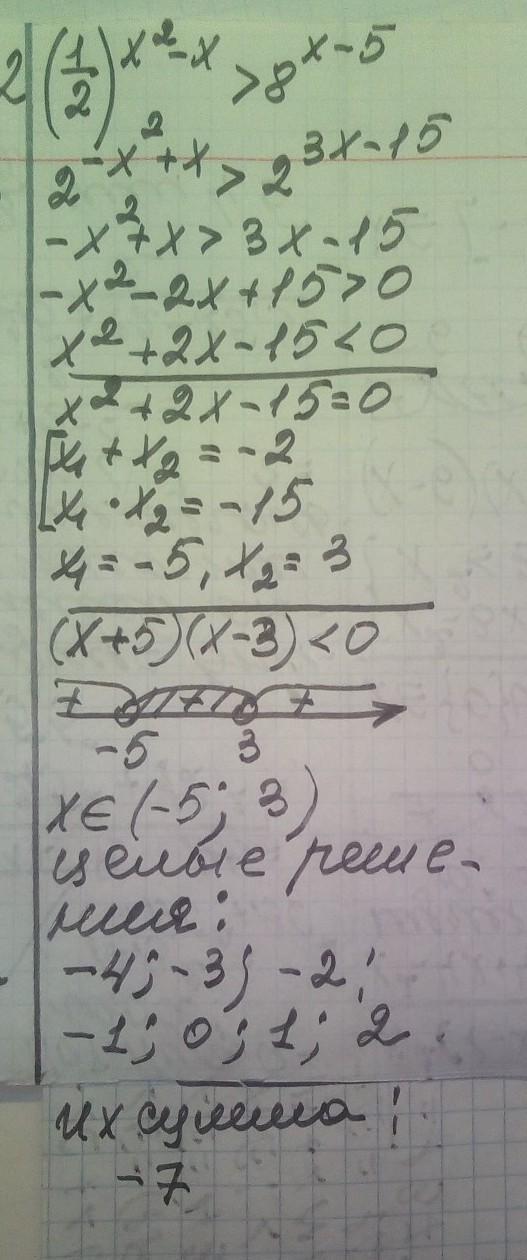 2 (1/2)^(x²-x) > 8^(x-5)
2^(-x²+x) > 2^(3x-15)
-x²+x > 3x-15
-x²-2x+15>0
x²+2x-15<0
x²+2x-15=0
[x₁+x₂=-2
x₁·x₂=-15
x₁=-5, x₂=3
(x+5)(x-3)<0
+ + +
-5 3
x∈(-5; 3)
целые реше-
ния:
-4; -3; -2;
-1; 0; 1; 2
их сумма:
-7